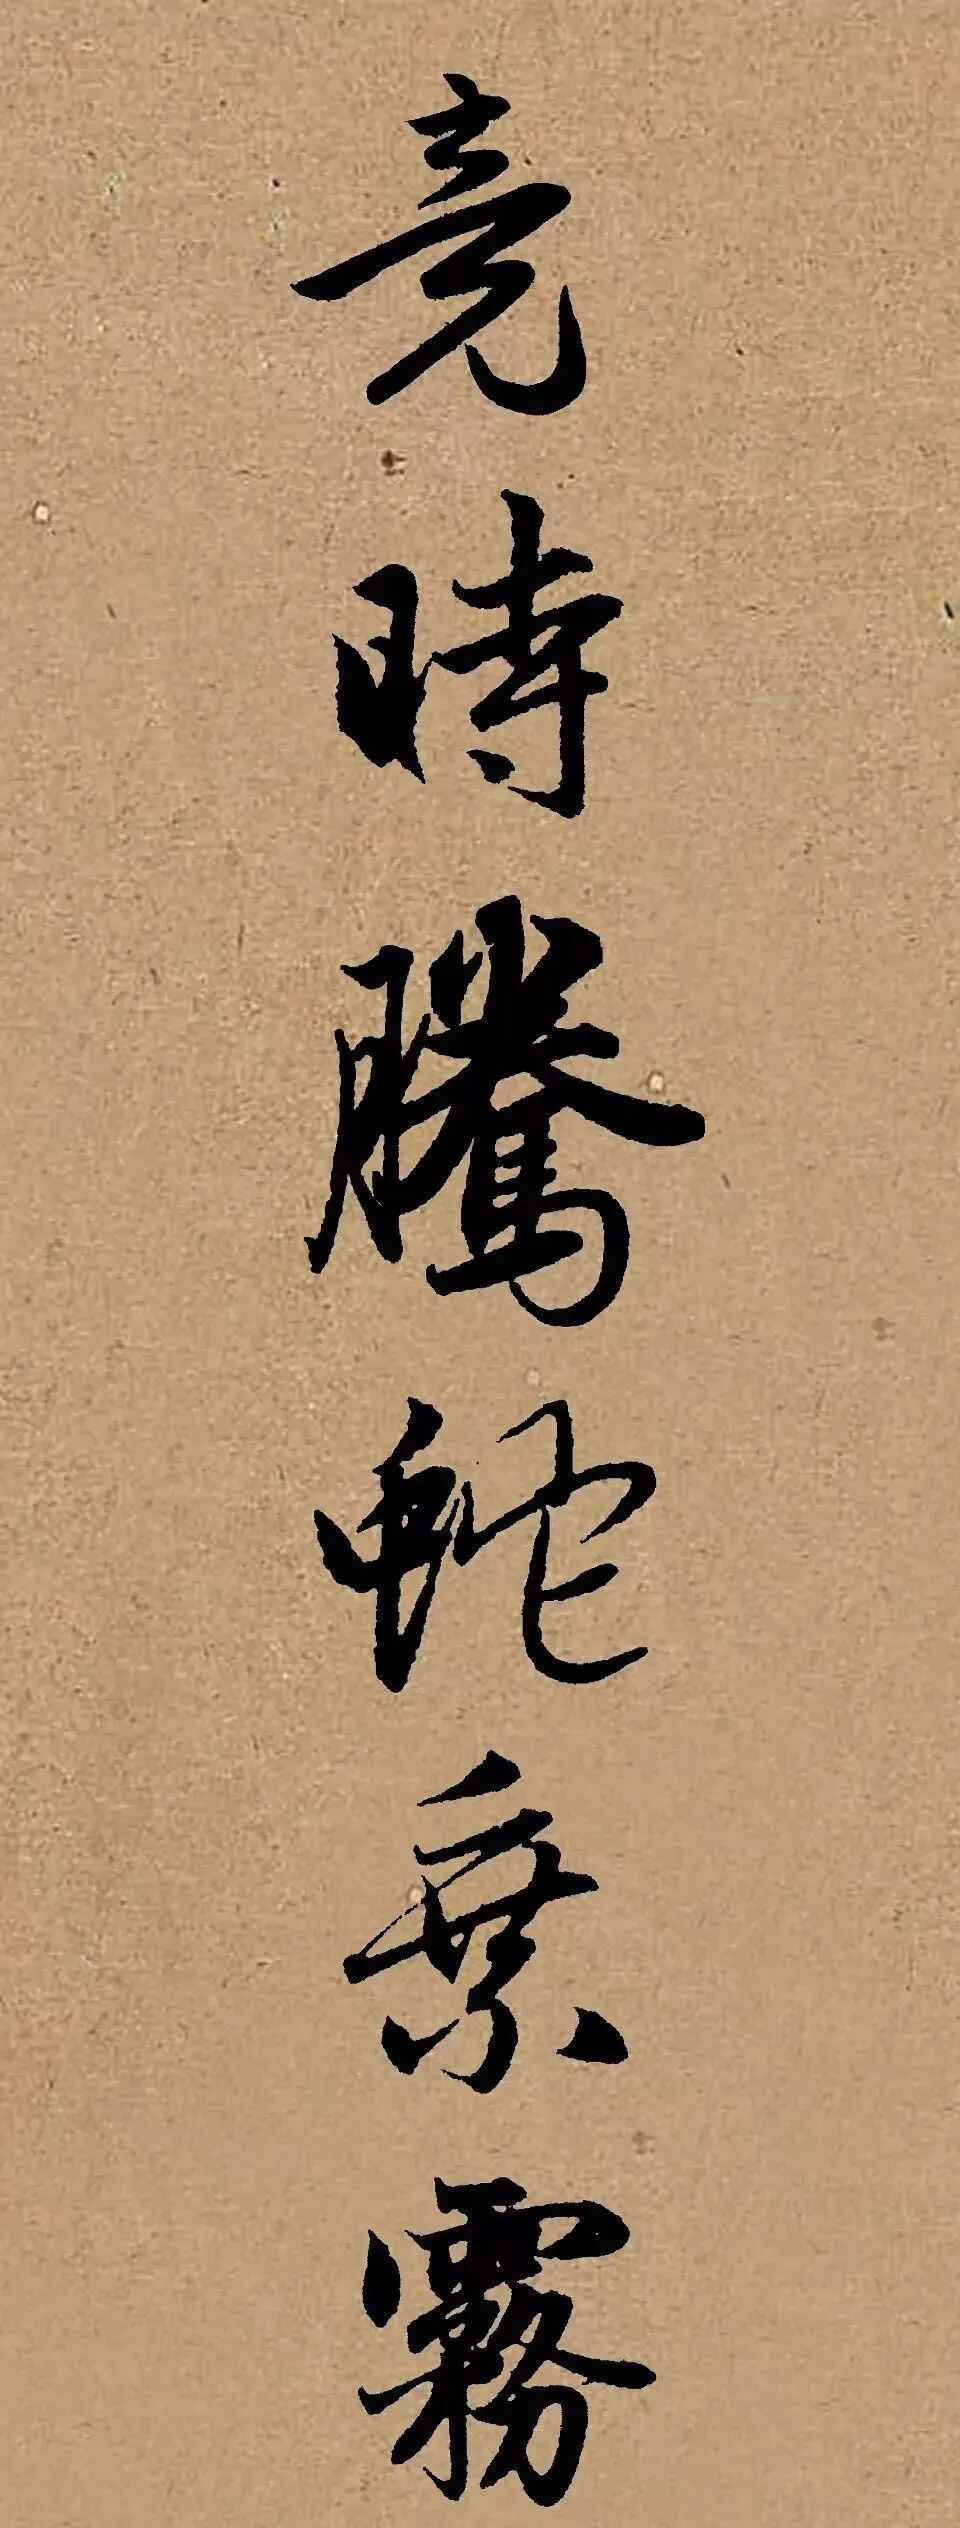 竟時騰蛇乘霧